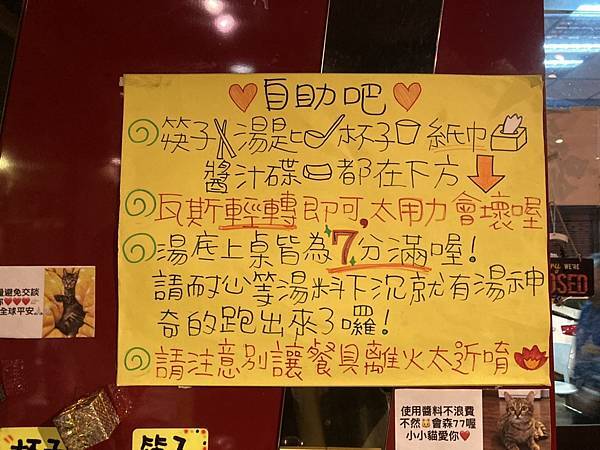 自助吧
筷子湯匙杯子紙巾
醬汁碟都在下方
瓦斯輕轉即可,太用力會壞喔
湯底上桌皆為7分滿喔!
請耐心等湯料下沉就有湯神
奇的跑出來了囉!
請注意別讓餐具離火太近唷
量避免交談
你❤❤❤
全球平安
使用醬料不浪費
不然會森77喔
小小貓愛你❤
杯子